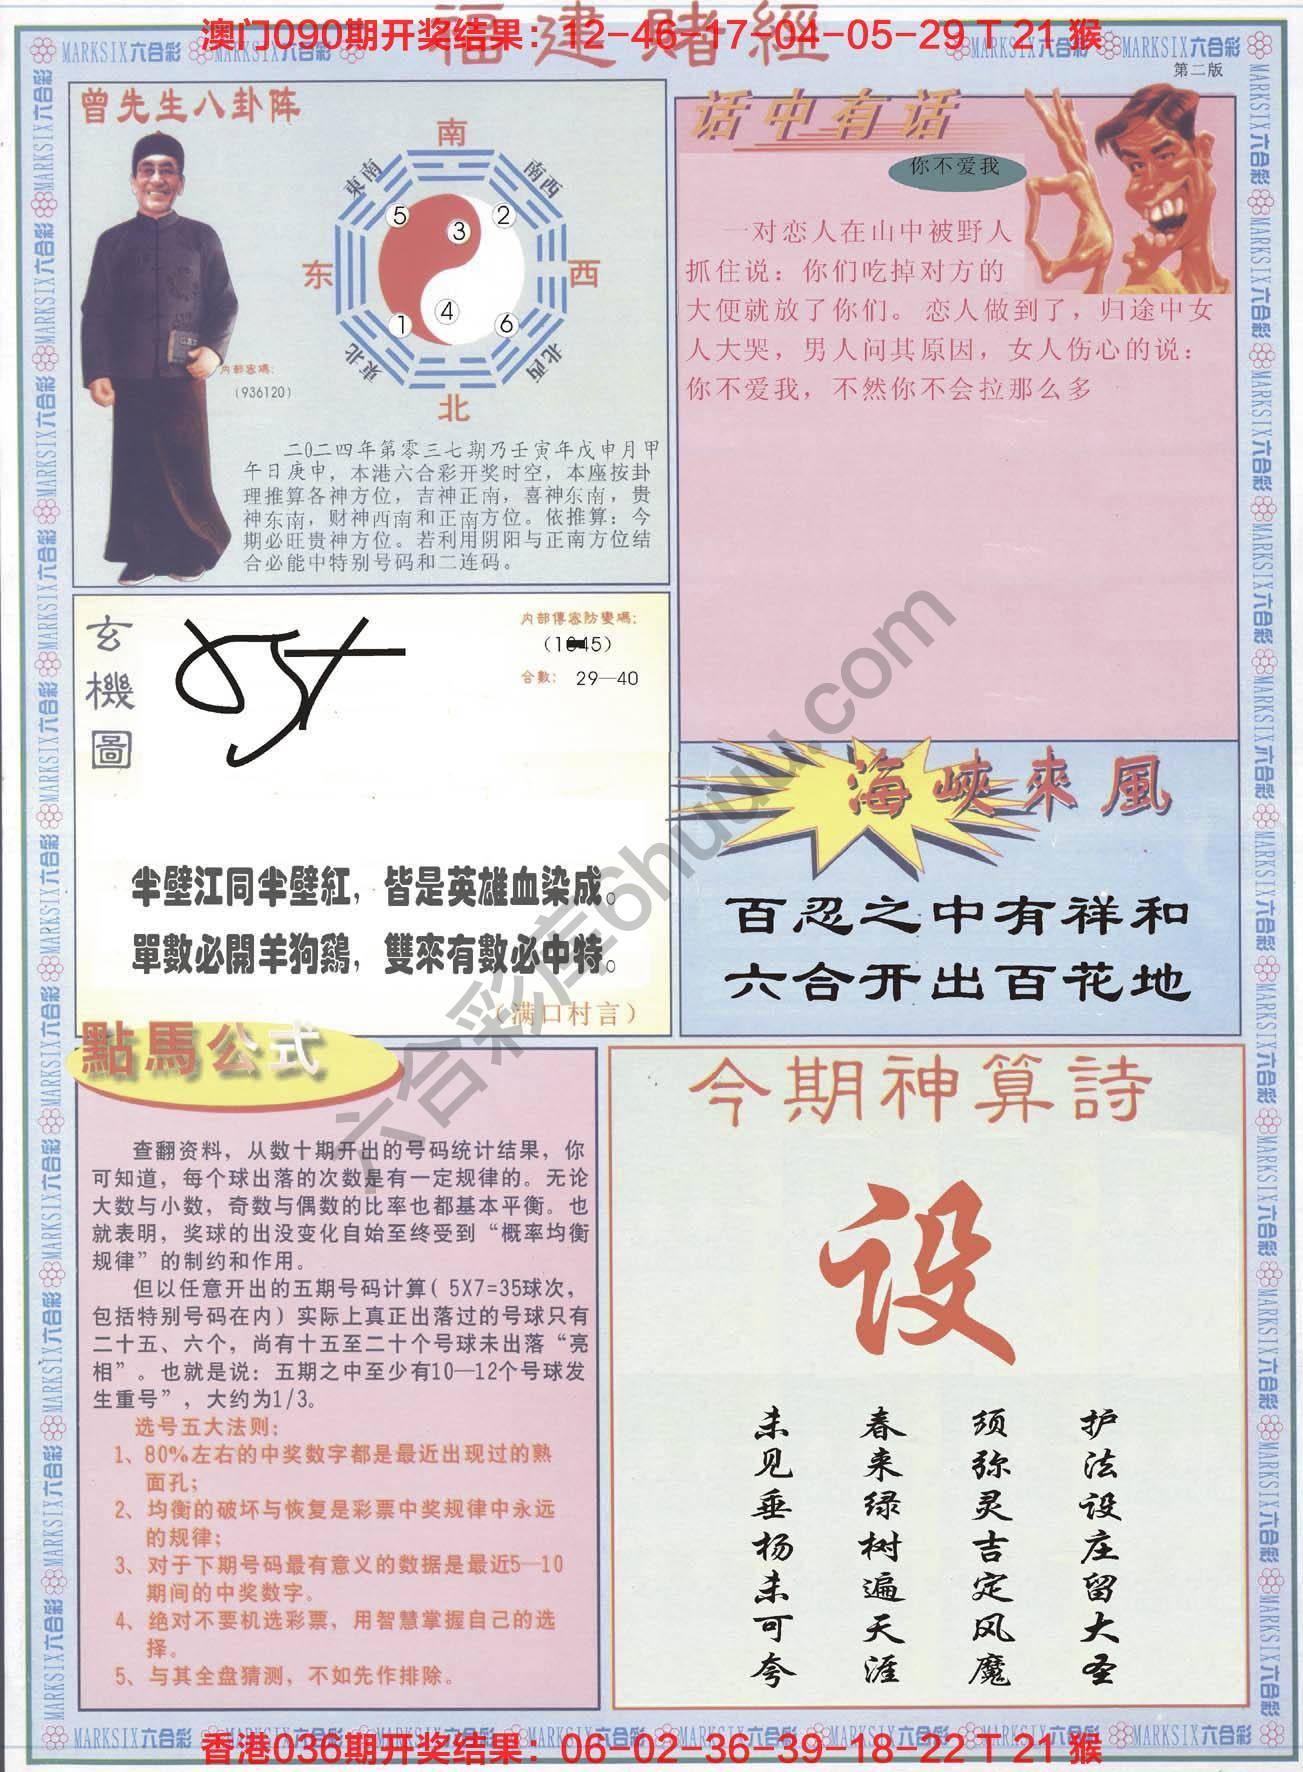 福建赌經
澳门090期开奖结果：12-46-17-04-05-29 T 21 猴
MARKSIX六合彩
第二版
曾先生八卦阵
南
東南
南西
5
3
2
东
西
4
1
6
東北
北西
北
内部密碼：
（936120）
二〇二四年第零三七期乃壬寅年戊申月甲
午日庚申，本港六合彩开奖时空，本座按卦
理推算各神方位，吉神正南，喜神东南，贵
神东南，财神西南和正南方位。依推算：今
期必旺贵神方位。若利用阴阳与正南方位结
合必能中特别号码和二连码。
话中有话
你不爱我
一对恋人在山中被野人
抓住说：你们吃掉对方的
大便就放了你们。恋人做到了，归途中女
人大哭，男人问其原因，女人伤心的说：
你不爱我，不然你不会拉那么多
玄機圖
内部傳密防變碼：
合數： 29—40
半壁江同半壁紅，皆是英雄血染成。
單數必開羊狗鷄，雙來有數必中特。
（满口村言）
海峽來風
百忍之中有祥和
六合开出百花地
點馬公式
查翻资料，从数十期开出的号码统计结果，你
可知道，每个球出落的次数是有一定规律的。无论
大数与小数，奇数与偶数的比率也都基本平衡。也
就表明，奖球的出没变化自始至终受到“概率均衡
规律”的制约和作用。
但以任意开出的五期号码计算（5X7=35球次，
包括特别号码在内）实际上真正出落过的号球只有
二十五、六个，尚有十五至二十个号球未出落“亮
相”。也就是说：五期之中至少有10—12个号球发
生重号”，大约为1/3。
选号五大法则：
1、80%左右的中奖数字都是最近出现过的熟
面孔；
2、均衡的破坏与恢复是彩票中奖规律中永远
的规律；
3、对于下期号码最有意义的数据是最近5—10
期间的中奖数字。
4、绝对不要机选彩票，用智慧掌握自己的选
择。
5、与其全盘猜测，不如先作排除。
今期神算詩
设
护法设庄留大圣
须弥灵吉定风魔
春来绿树遍天涯
未见垂杨未可夸
六合彩库6huuu.com
香港036期开奖结果：06-02-36-39-18-22 T 21 猴